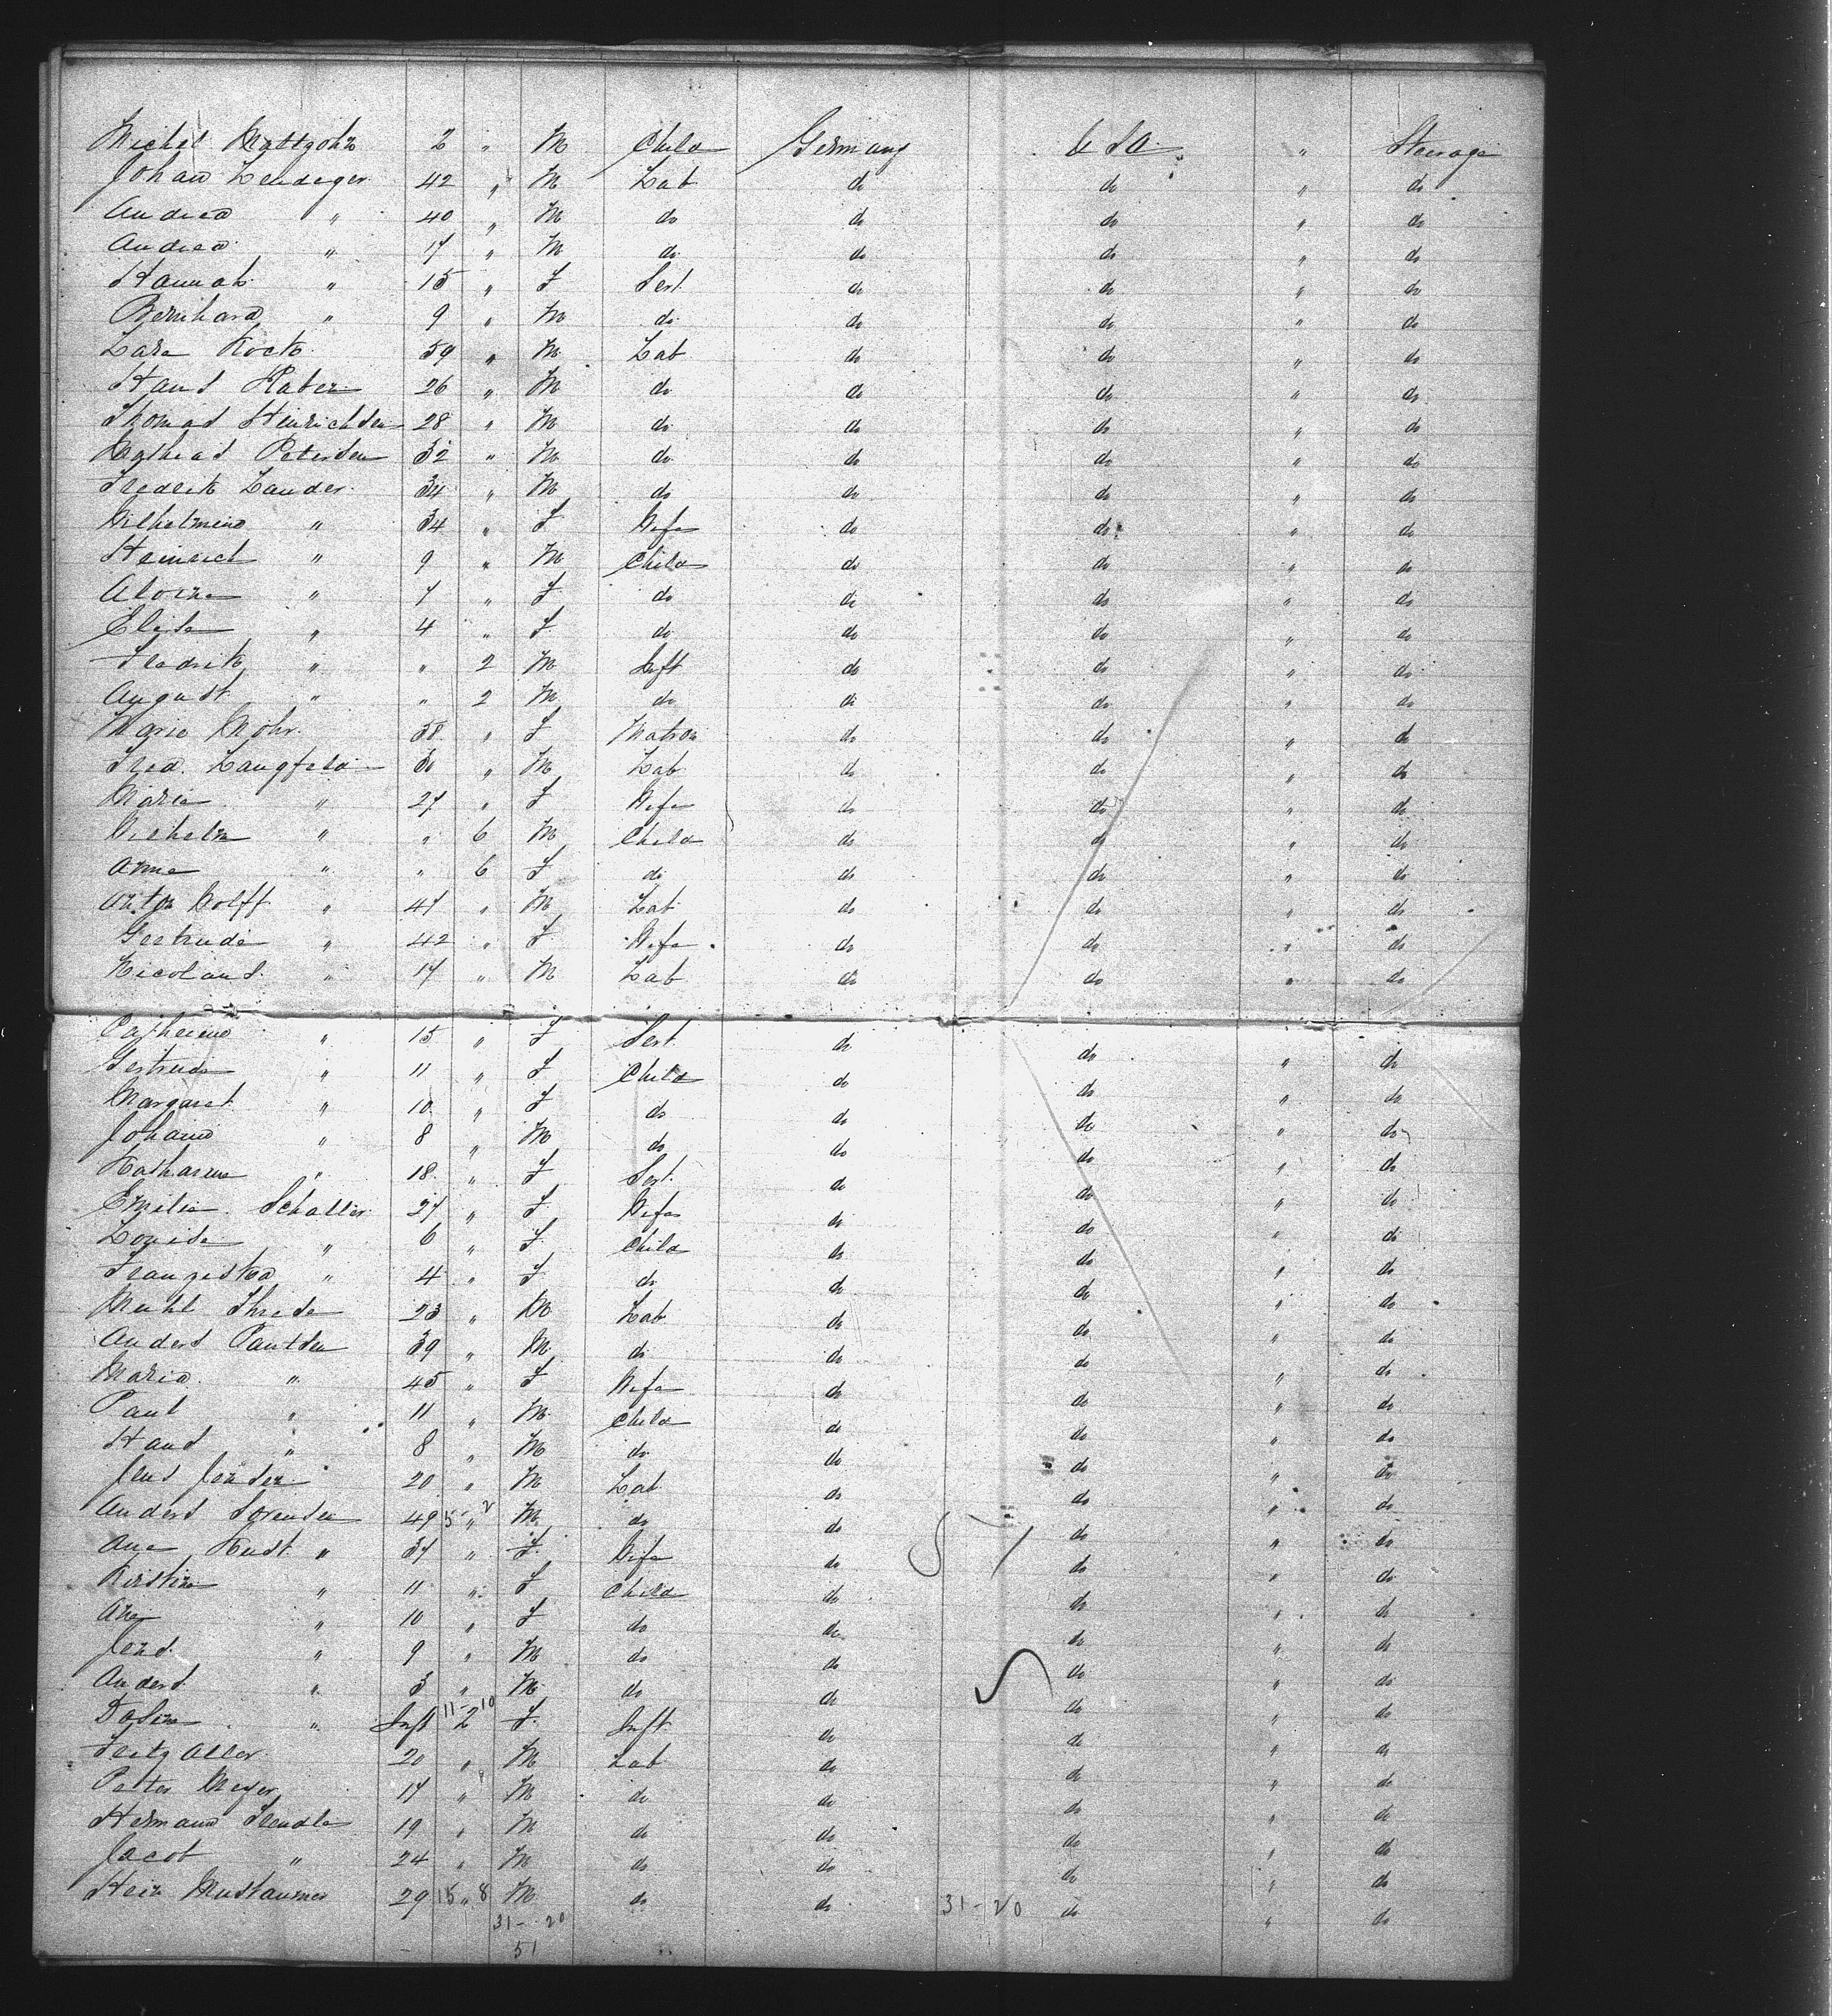 Michel Mattzohn 2 " M Child Germany U S A " Steerage
Johann Lendeger 42 " M Lab do do " do
Andrea " 40 " M do do do " do
Andrea " 17 " M do do do " do
Hannah " 15 " F Sert do do " do
Bernhard " 9 " M do do do " do
Lars Kock 59 " M Lab do do " do
Hans Raben 26 " M do do do " do
Thomas Heinrichsen 28 " M do do do " do
Mathias Petersen 32 " M do do do " do
Fredrik Lander 34 " M do do do " do
Wilhelmine " 34 " F Wife do do " do
Heinrich " 9 " M Child do do " do
" 7 " F do do do " do
Elise " 4 " F do do do " do
Fredrik " " 2 M Inft do do " do
August " " 2 M do do do " do
Marie Mohr 38 " F Matron do do " do
Fred. Langfeld 30 " M Lab do do " do
Maria " 27 " F Wife do do " do
Wilhelm " " 6 M Child do do " do
Anna " " 6 F do do do " do
Anton Wolff " 47 " M Lab do do " do
Gertrude " 42 " F Wife do do " do
Nicolaus " 17 " M Lab do do " do
Catherine " 15 " F Sert do do " do
Gertrude " 11 " F Child do do " do
Margaret " 10 " F do do do " do
Johann " 8 " M do do do " do
Katharine " 18 " F Sert do do " do
Emilie Schaller 27 " F Wife do do " do
Louise " 6 " F Child do do " do
Franziska " 4 " F do do do " do
23 " M Lab do do " do
Anders Paulsen 39 " M do do do " do
Maria " 45 " F Wife do do " do
Paul " 11 " M Child do do " do
Hans " 8 " M do do do " do
Jens Jensen 20 " M Lab do do " do
Anders Sorensen 49 15 " 2 M do do do " do
Ane Kust " 37 " F Wife do do " do
Kirstine " 11 " F Child do do " do
Ane " 10 " F do do do " do
Jens " 9 " M do do do " do
Anders " 3 " M do do do " do
" Inft 11 2 10 F Inft do do " do
Fritz Aller 20 " M Lab do do " do
Peter Meyer 17 " M do do do " do
Hermann Trendle 19 " M do do do " do
Jacob " 24 " M do do do " do
Hein 29 15 " 8 M do do 31-20 do " do
31-20
51